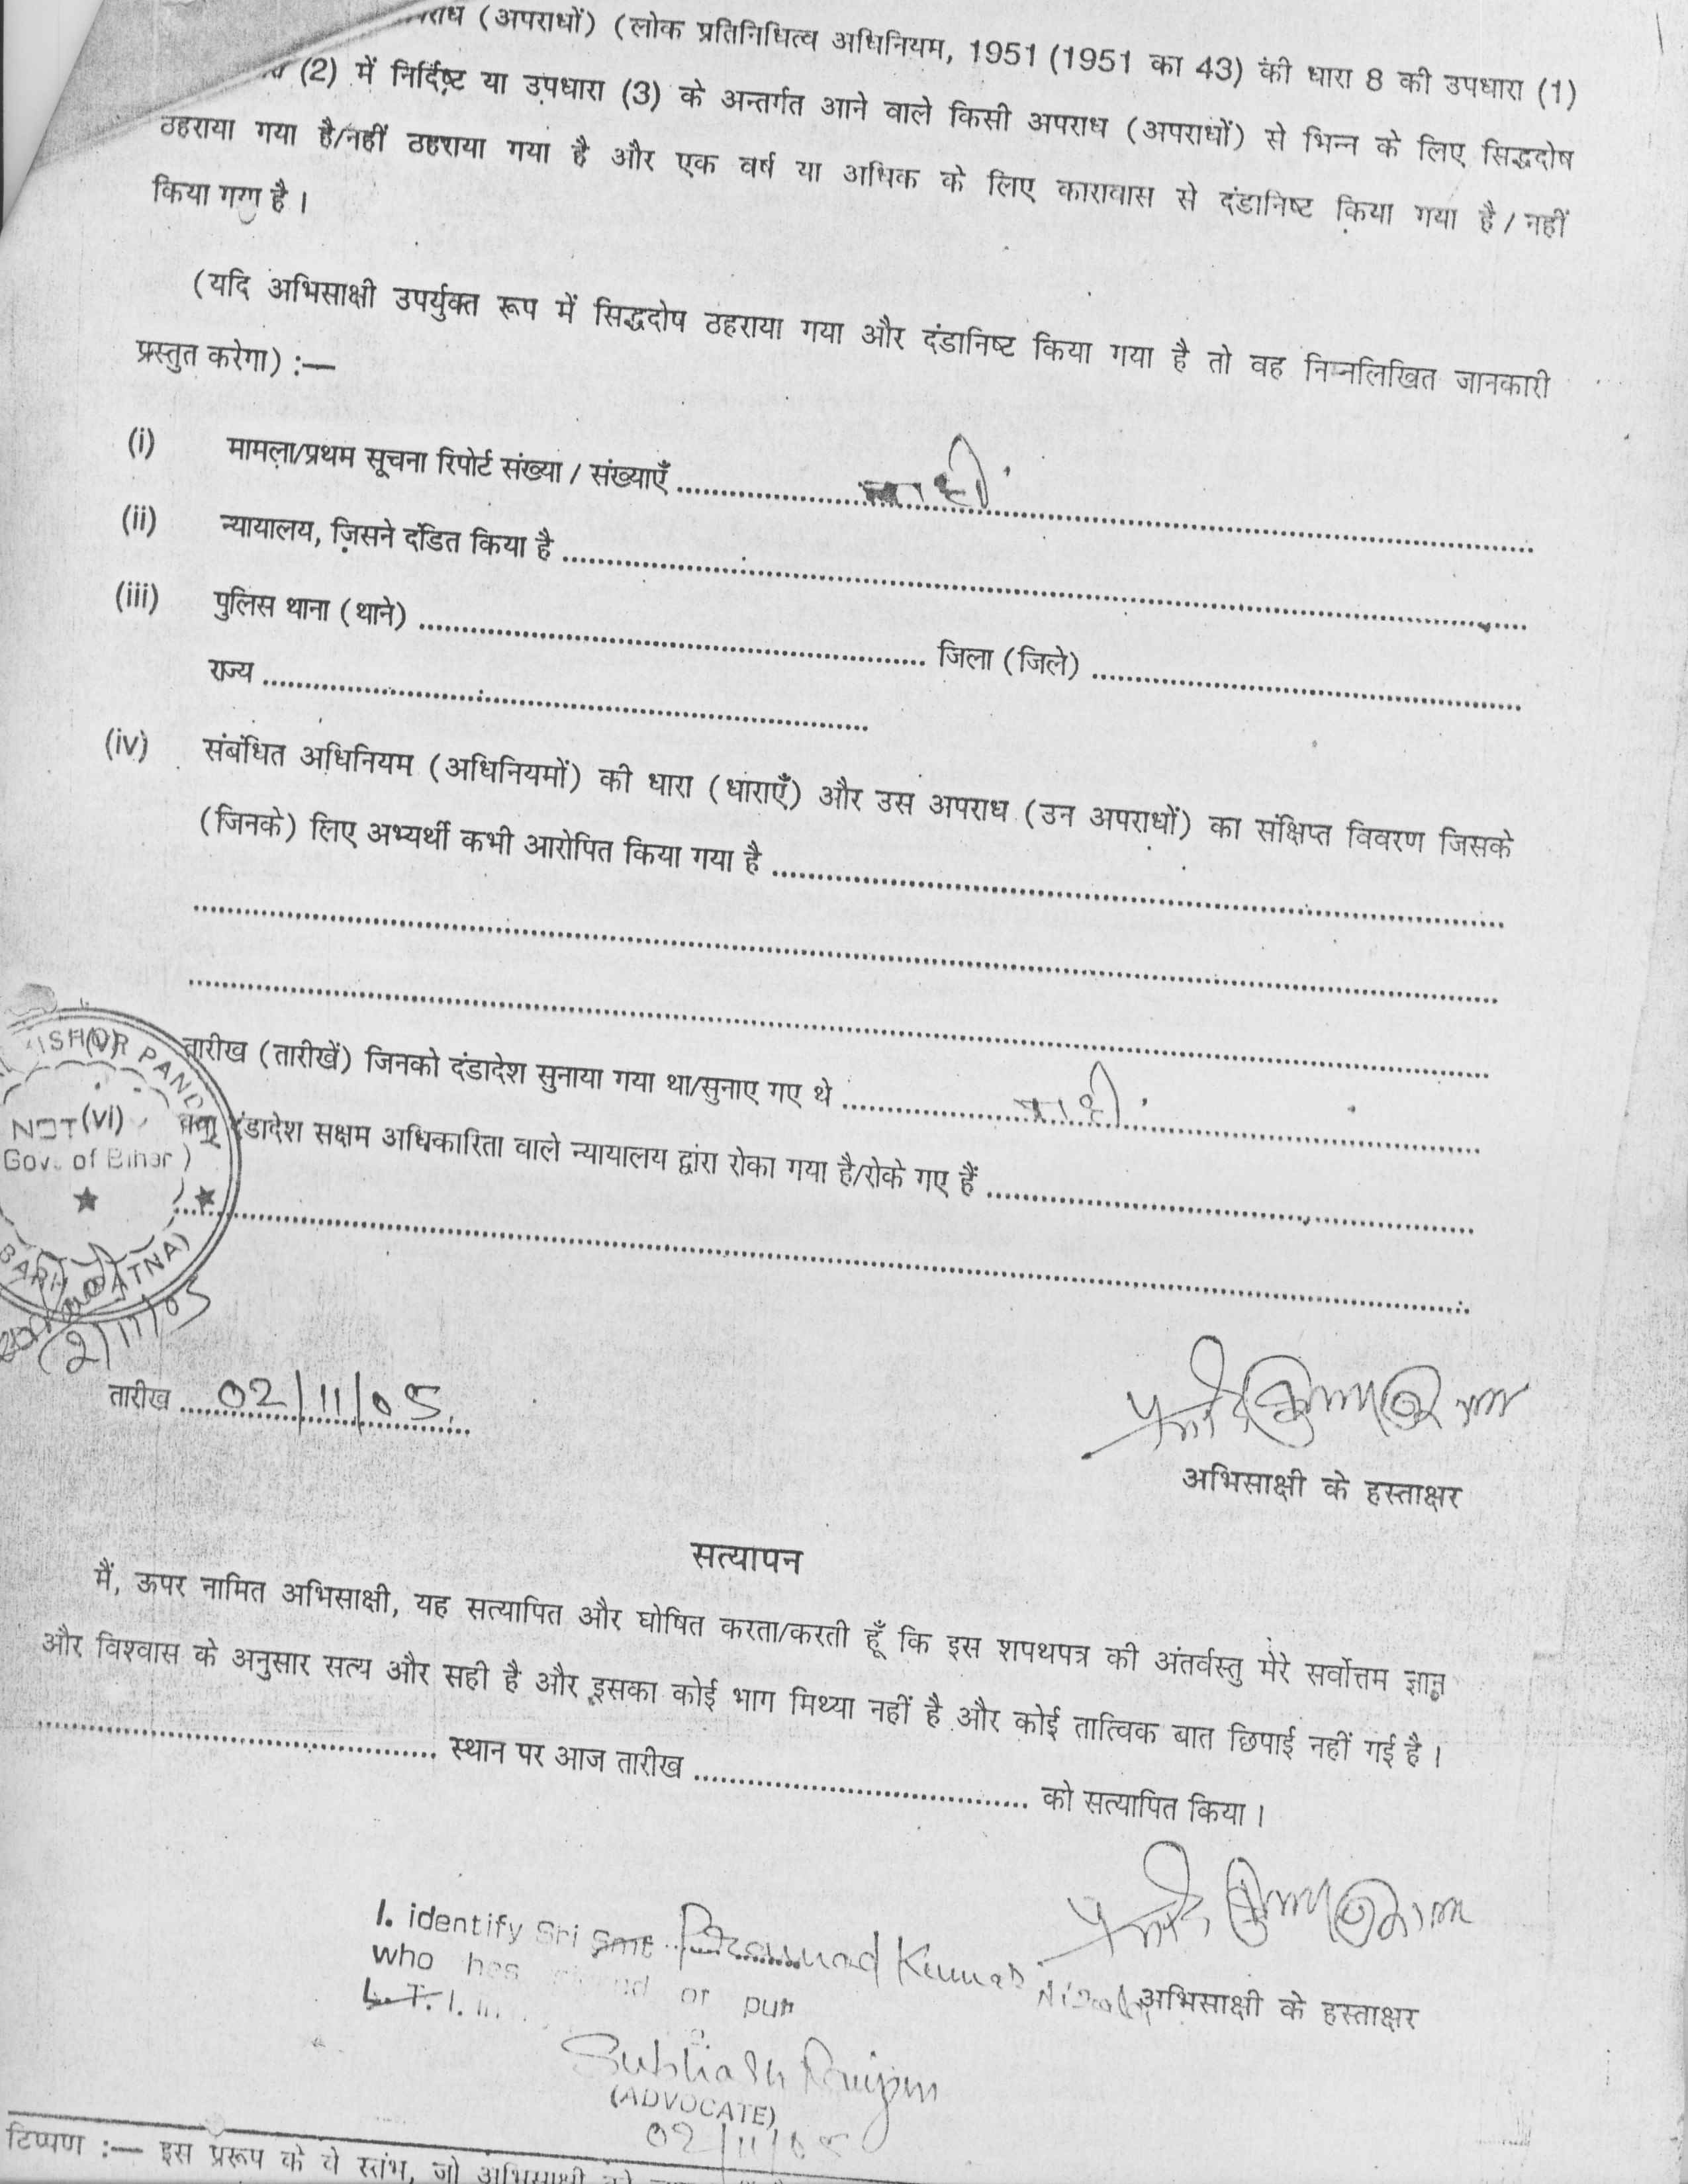 (अपराधों) (लोक प्रतिनिधित्व अधिनियम, 1951 (1951 का 43) की धारा 8 की उपधारा (1)
(2) में निर्दिष्ट या उपधारा (3) के अन्तर्गत आने वाले किसी अपराध (अपराधों) से भिन्न के लिए सिद्धदोष
ठहराया गया है/नहीं ठहराया गया है और एक वर्ष या अधिक के लिए कारावास से दंडानिष्ट किया गया है / नहीं
किया गया है ।
(यदि अभिसाक्षी उपर्युक्त रूप में सिद्धदोष ठहराया गया और दंडानिष्ट किया गया है तो वह निम्नलिखित जानकारी
प्रस्तुत करेगा) :—
(i) मामला/प्रथम सूचना रिपोर्ट संख्या / संख्याएँ ........ नहीं ........
(ii) न्यायालय, जिसने दंडित किया है ........
(iii) पुलिस थाना (थाने) ........ जिला (जिले) ........
राज्य ........
(iv) संबंधित अधिनियम (अधिनियमों) की धारा (धाराएँ) और उस अपराध (उन अपराधों) का संक्षिप्त विवरण जिसके
(जिनके) लिए अभ्यर्थी कभी आरोपित किया गया है ........
(v) तारीख (तारीखें) जिनको दंडादेश सुनाया गया था/सुनाए गए थे ........ नहीं ........
(vi) क्या दंडादेश सक्षम अधिकारिता वाले न्यायालय द्वारा रोका गया है/रोके गए हैं ........
Gov. of Bihar)
BARH (PATNA)
2/11/05
तारीख .... 02/11/05 ....
अभिसाक्षी के हस्ताक्षर
सत्यापन
मैं, ऊपर नामित अभिसाक्षी, यह सत्यापित और घोषित करता/करती हूँ कि इस शपथपत्र की अंतर्वस्तु मेरे सर्वोत्तम ज्ञान
और विश्वास के अनुसार सत्य और सही है और इसका कोई भाग मिथ्या नहीं है और कोई तात्विक बात छिपाई नहीं गई है ।
........ स्थान पर आज तारीख ........ को सत्यापित किया ।
I. identify Sri Smt ........ Pramod Kumar
who has or put
L. T. I. in
अभिसाक्षी के हस्ताक्षर
Subhash
(ADVOCATE)
02/11/05
टिप्पण :— इस प्ररूप के वे स्तंभ, जो अभिसाक्षी